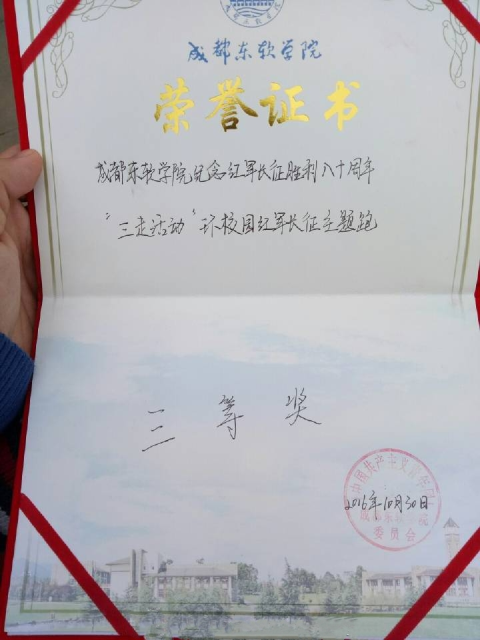 成都东软学院
荣誉证书
成都东软学院纪念红军长征胜利八十周年
"三走活动"环校园红军长征主题跑
三等奖
2016年10月30日
委员会